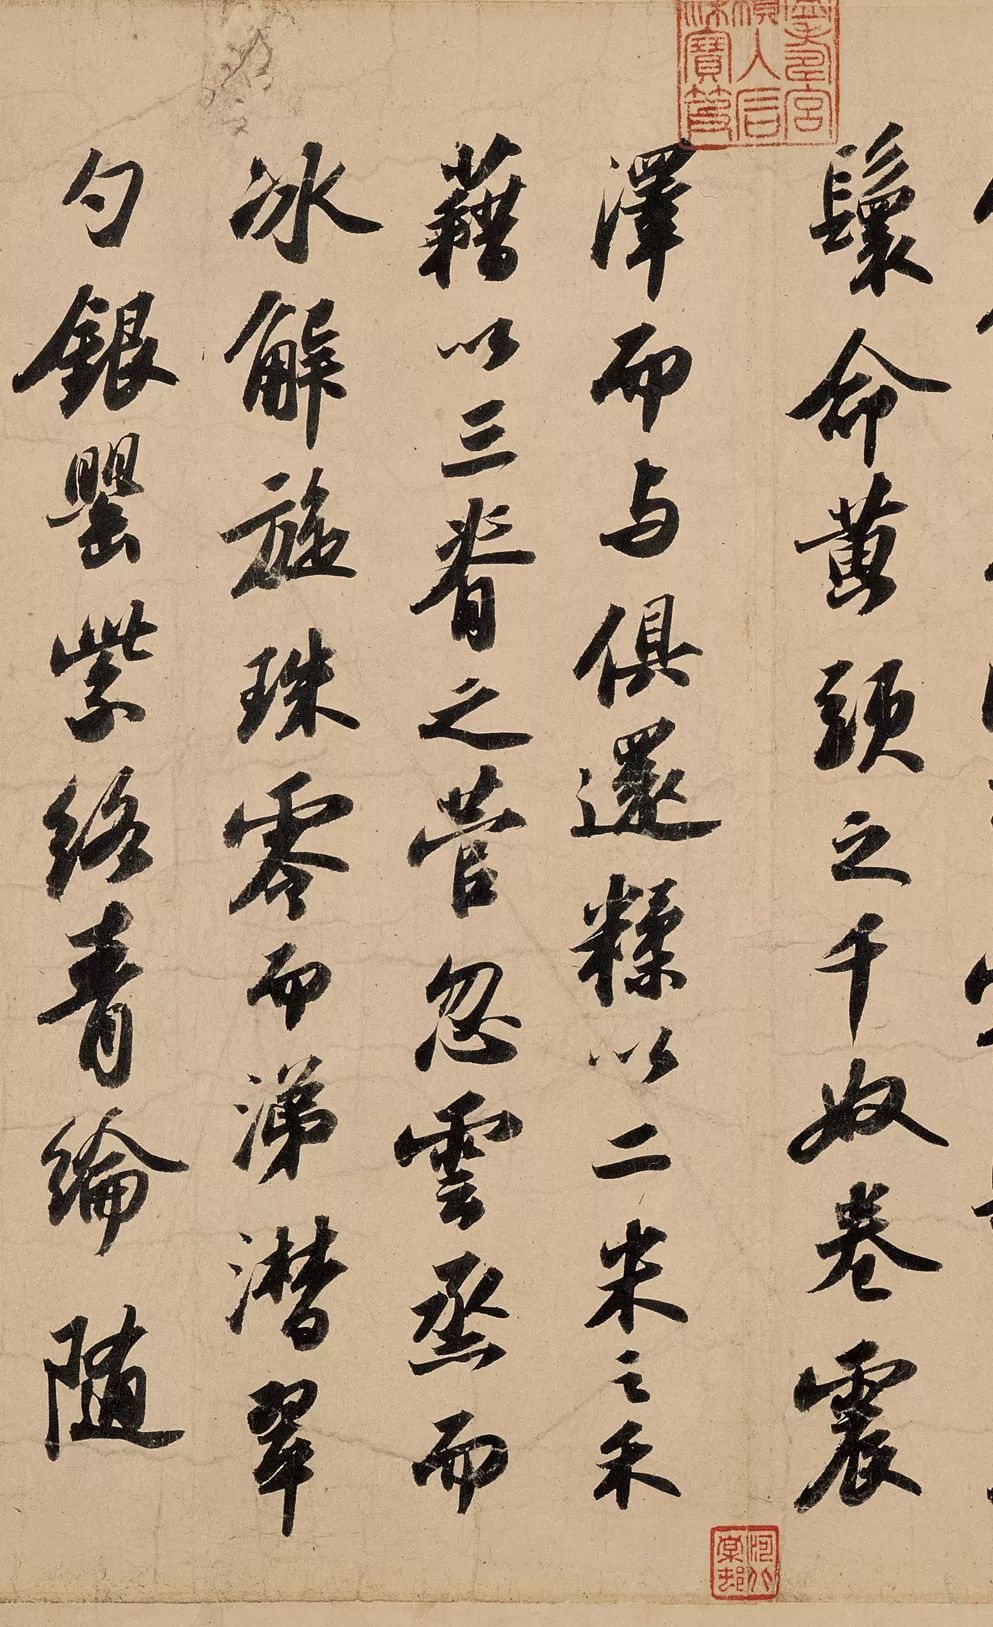 鬟命黃頭之千奴卷震
澤而与俱還糅以二米之禾
藉以三脊之菅忽雲烝而
冰解旋珠零而涕潸翠
勺銀罌紫絡青綸隨